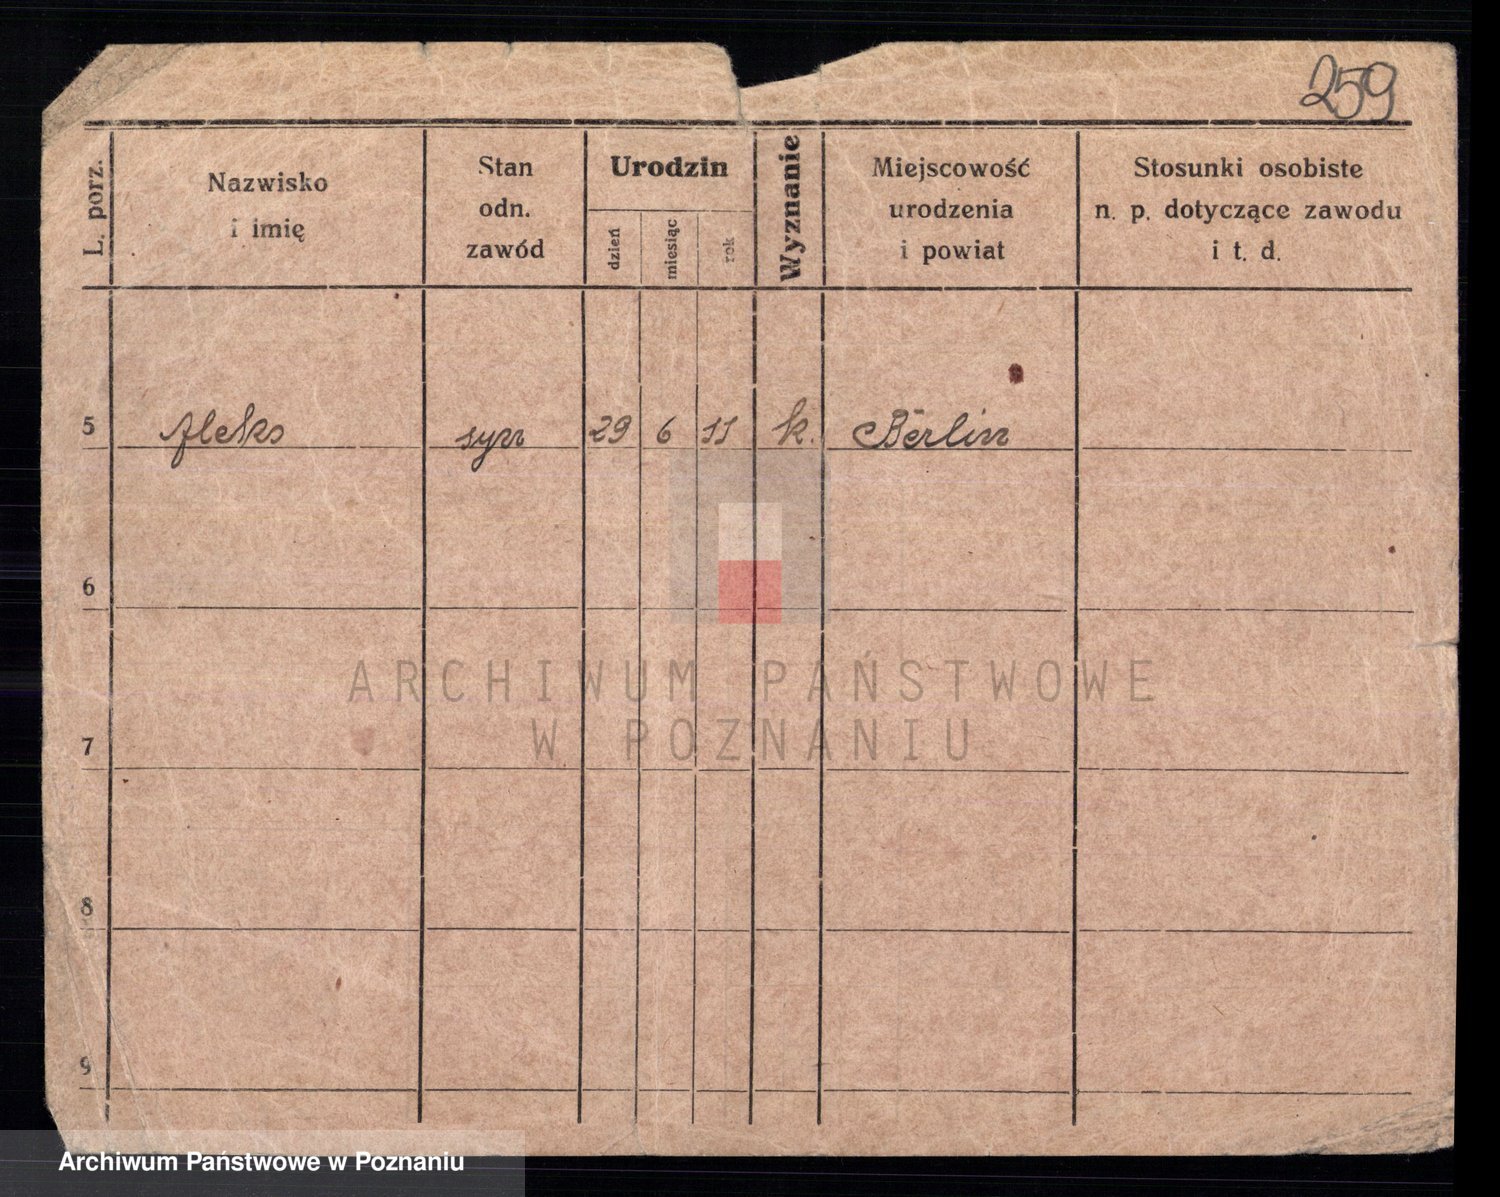 259
L. porz.
Nazwisko
i imię
Stan
odn.
zawód
Urodzin
dzień
miesiąc
rok
Wyznanie
Miejscowość
urodzenia
i powiat
Stosunki osobiste
n. p. dotyczące zawodu
i t. d.
5 Aleks syn 29 6 11 k. Berlin
6
ARCHIWUM PAŃSTWOWE
W POZNANIU
7
8
9
Archiwum Państwowe w Poznaniu